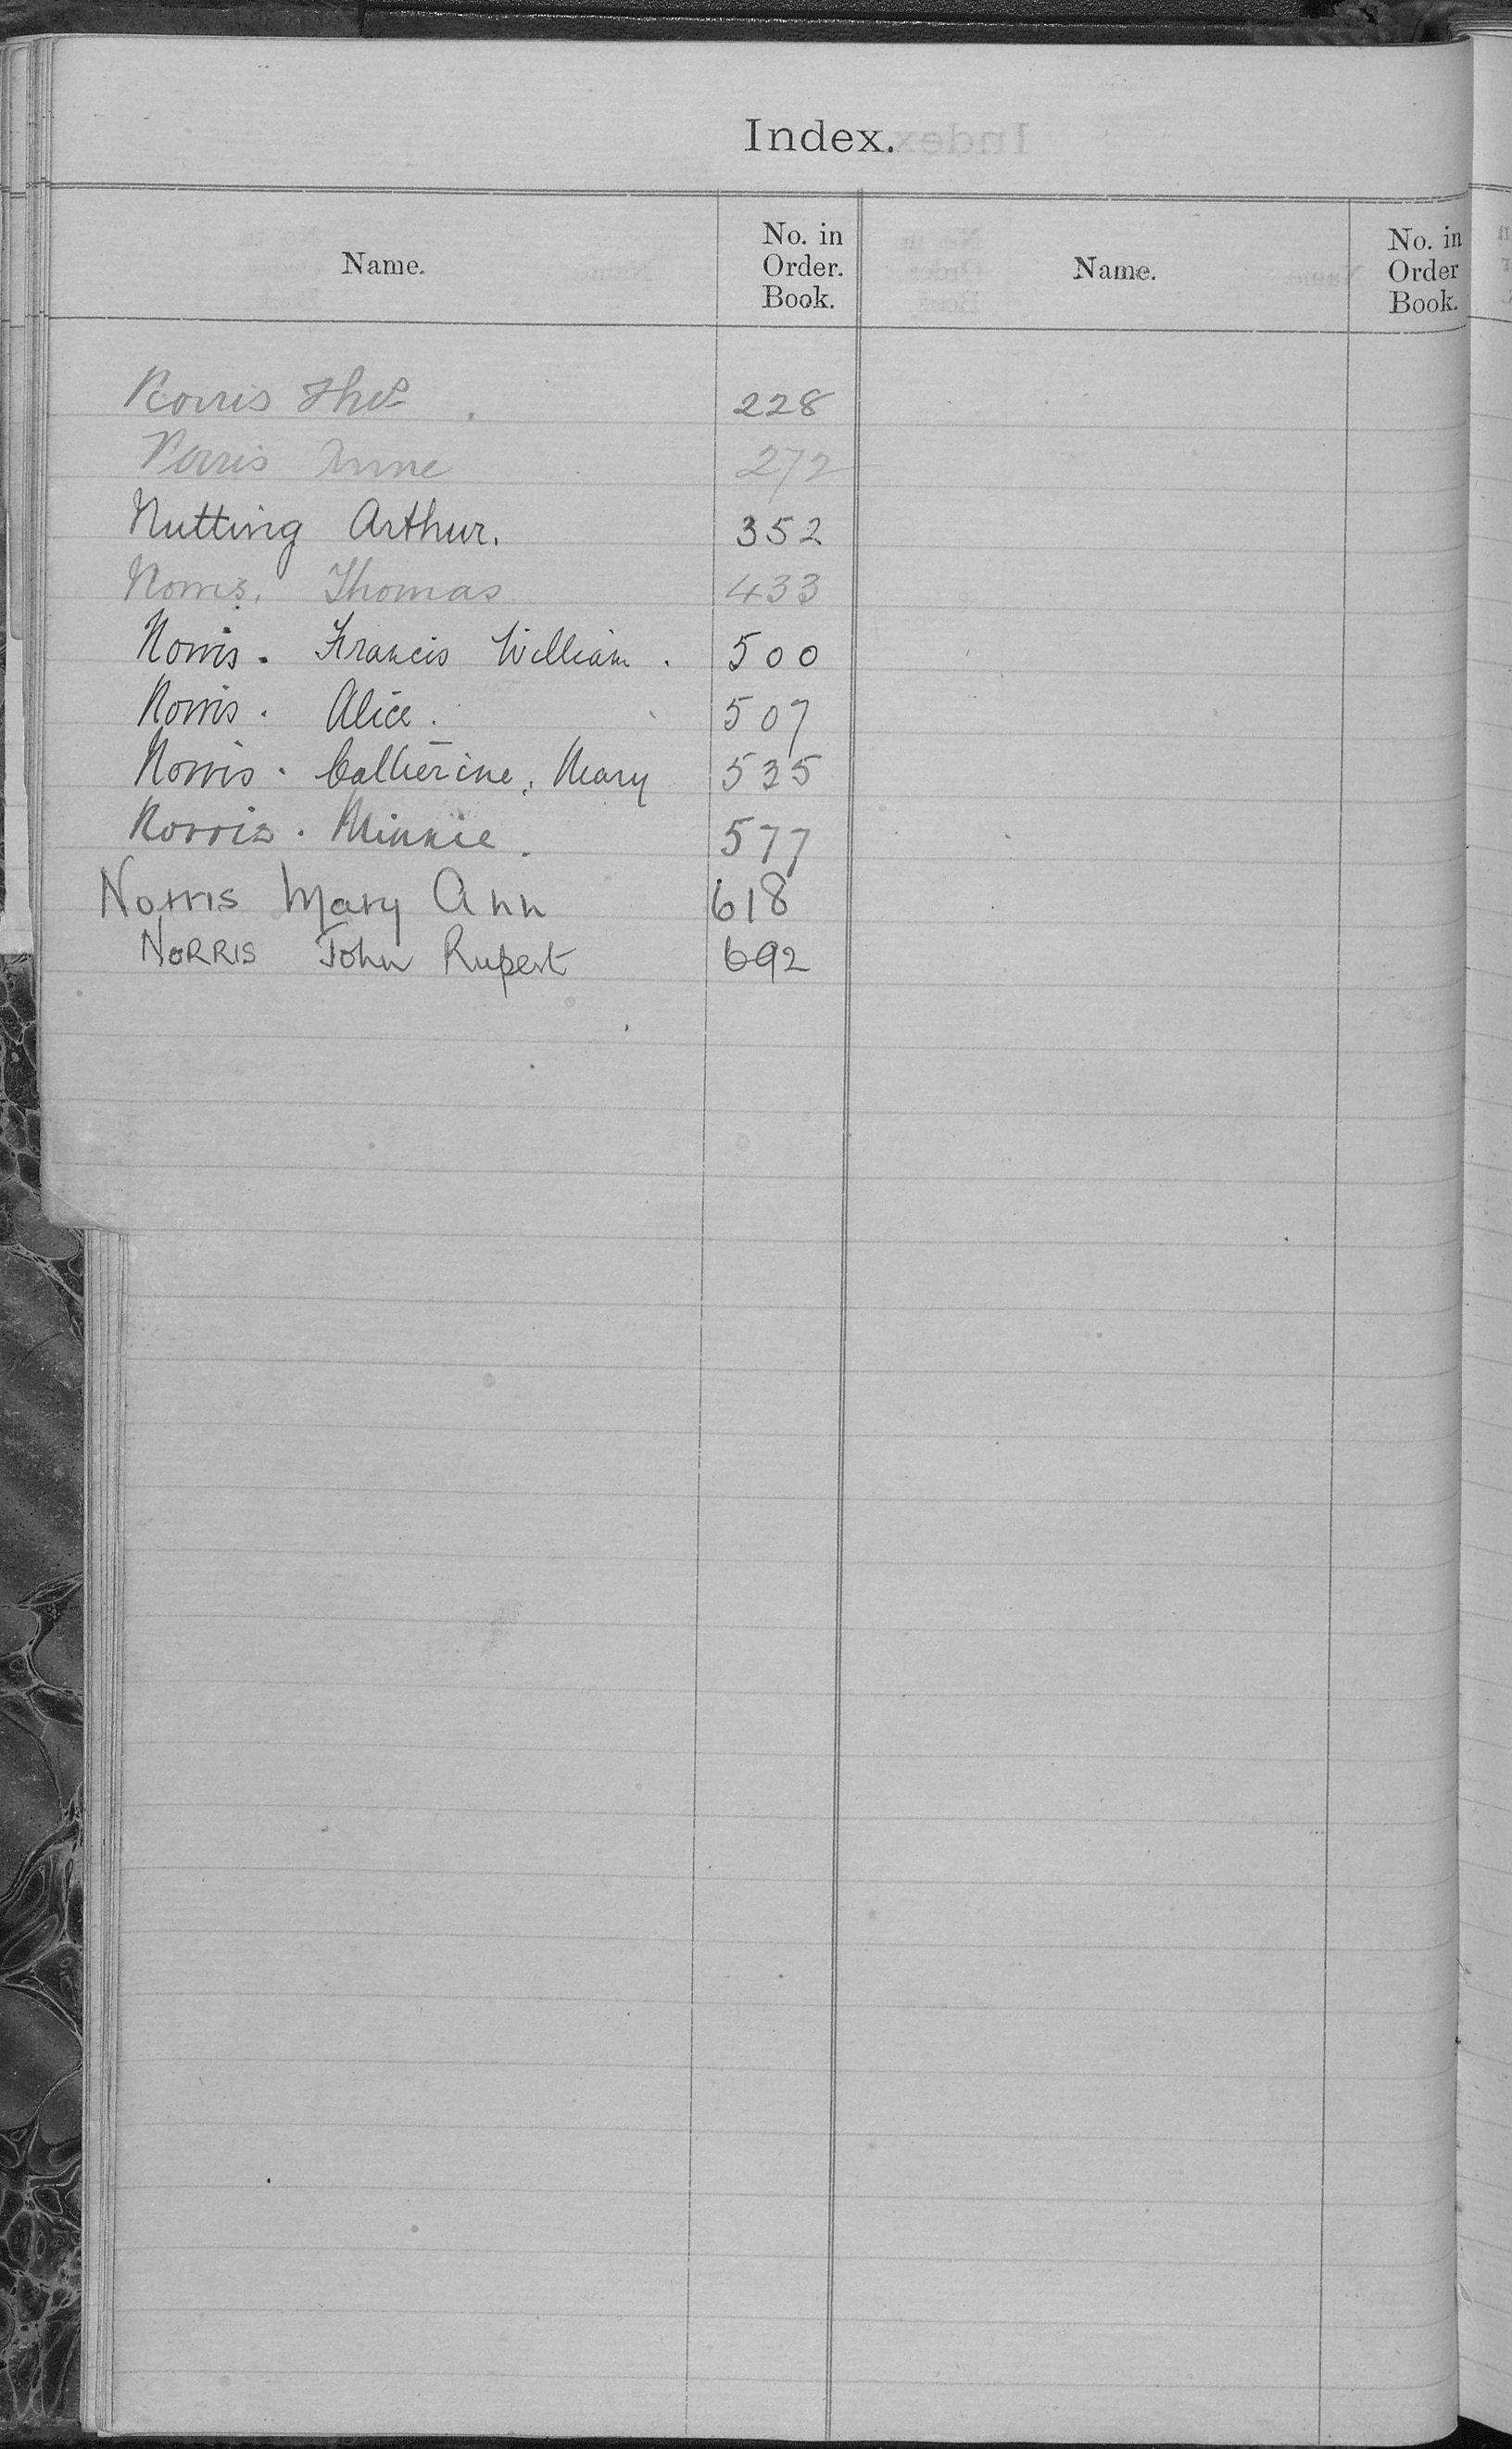 Index.
Name. No. in Order. Book. Name. No. in Order Book.
Norris Thos 228
Norris Anne 272
Nutting Arthur. 352
Norris. Thomas 433
Norris. Francis William. 500
Norris. Alice. 507
Norris. Catherine, Mary 535
Norris. Minnie. 577
Norris Mary Ann 618
NORRIS John Rupert 692